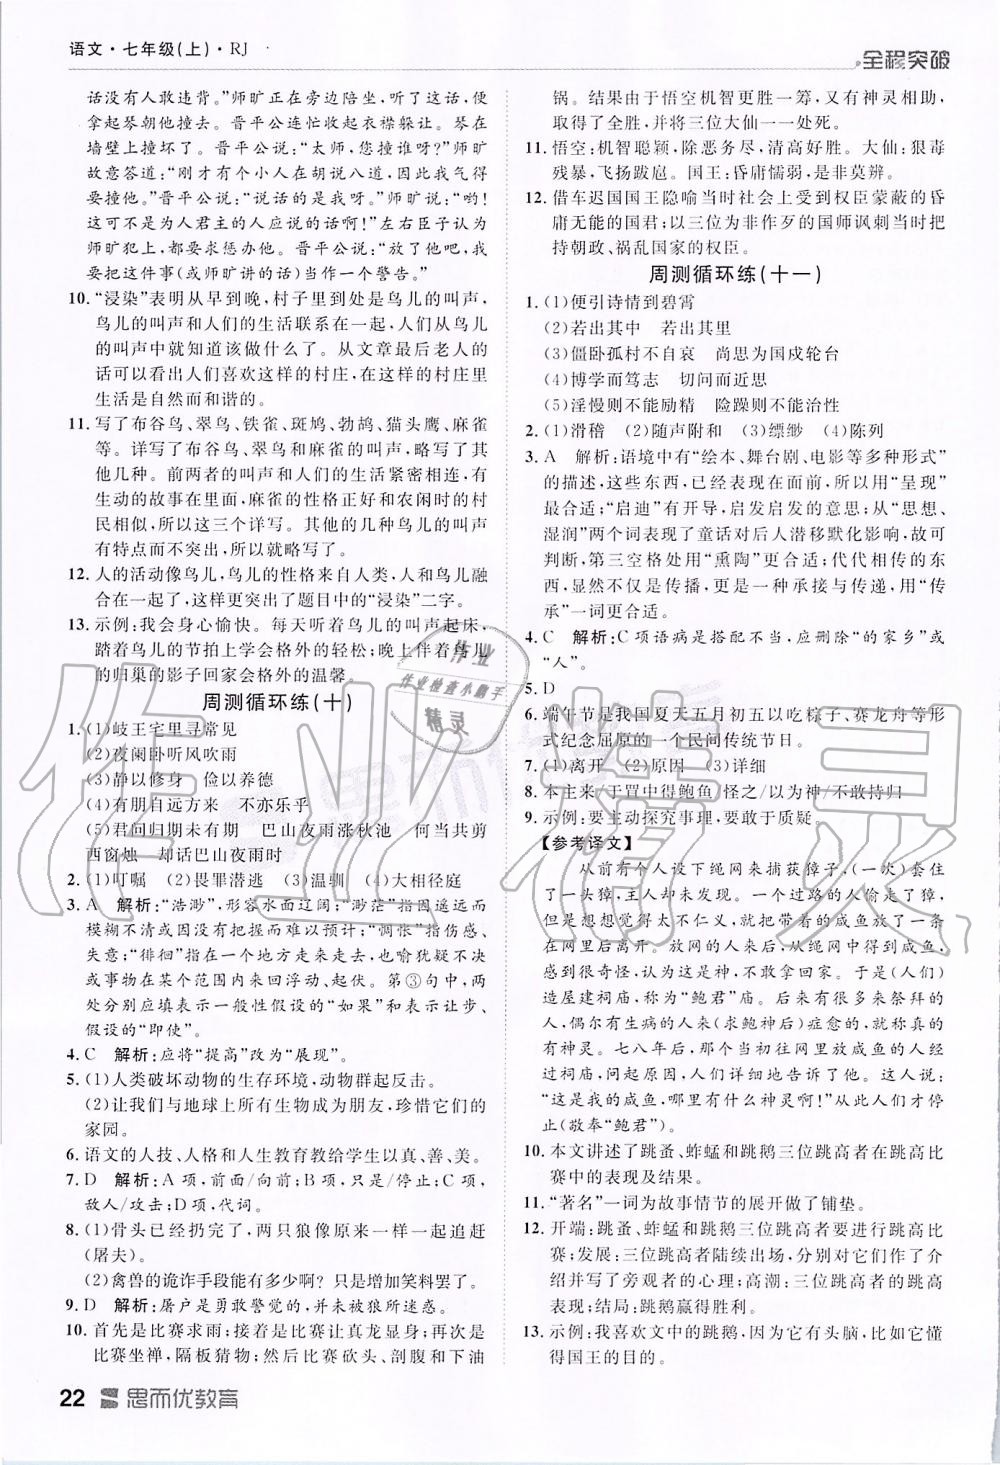 语文·七年级(上)·RJ
全程突破
话没有人敢违背。”师旷正在旁边陪坐,听了这话,便
拿起琴朝他撞去。晋平公连忙收起衣襟躲让。琴在
墙壁上撞坏了。晋平公说:“太师,您撞谁呀?”师旷
故意答道:“刚才有个小人在胡说八道,因此我气得
要撞他。”晋平公说:“说话的是我呀。”师旷说:“哟!
这可不是为人君主的人应说的话啊!”左右臣子认为
师旷犯上,都要求惩办他。晋平公说:“放了他吧,我
要把这件事(或师旷讲的话)当作一个警告。”
10. “浸染”表明从早到晚,村子里到处是鸟儿的叫声,
鸟儿的叫声和人们的生活联系在一起,人们从鸟儿
的叫声中就知道该做什么了。从文章最后老人的
话可以看出人们喜欢这样的村庄,在这样的村庄里
生活是自然而和谐的。
11. 写了布谷鸟、翠鸟、铁雀、斑鸠、勃鸪、猫头鹰、麻雀
等。详写了布谷鸟、翠鸟和麻雀的叫声,略写了其
他几种。前两者的叫声和人们的生活紧密相连,有
生动的故事在里面,麻雀的性格正好和农闲时的村
民相似,所以这三个详写。其他的几种鸟儿的叫声
有特点而不突出,所以就略写了。
12. 人的活动像鸟儿,鸟儿的性格来自人类,人和鸟儿融
合在一起了,这样更突出了题目中的“浸染”二字。
13. 示例:我会身心愉快。每天听着鸟儿的叫声起床,
踏着鸟儿的节拍上学会格外的轻松;晚上伴着鸟儿
的归巢的影子回家会格外的温馨。
周测循环练(十)
1. (1)岐王宅里寻常见
(2)夜阑卧听风吹雨
(3)静以修身 俭以养德
(4)有朋自远方来 不亦乐乎
(5)君问归期未有期 巴山夜雨涨秋池 何当共剪
西窗烛 却话巴山夜雨时
2. (1)叮嘱 (2)畏罪潜逃 (3)温驯 (4)大相径庭
3. A 解析:“浩渺”,形容水面辽阔;“渺茫”指因遥远而
模糊不清或因没有把握而难以预计;“惆怅”指伤感、
失意;“徘徊”指在一个地方走来走去,也喻犹疑不决
或事物在某个范围内来回浮动、起伏。第③句中,两
处分别应填表示一般性假设的“如果”和表示让步、
假设的“即使”。
4. C 解析:应将“提高”改为“展现”。
5. (1)人类破坏动物的生存环境,动物群起反击。
(2)让我们与地球上所有生物成为朋友,珍惜它们的
家园。
6. 语文的人技、人格和人生教育教给学生以真、善、美。
7. D 解析:A项,前面/向前;B项,只是/停止;C项,
敌人/攻击;D项,代词。
8. (1)骨头已经扔完了,两只狼像原来一样一起追赶
(屠夫)。
(2)禽兽的诡诈手段能有多少啊?只是增加笑料罢了。
9. D 解析:屠户是勇敢警觉的,并未被狼所迷惑。
10. 首先是比赛求雨;接着是比赛让真龙显身;再次是
比赛坐禅,隔板猜物;然后比赛砍头、剖腹和下油
锅。结果由于悟空机智更胜一筹,又有神灵相助,
取得了全胜,并将三位大仙一一处死。
11. 悟空:机智聪颖,除恶务尽,清高好胜。大仙:狠毒
残暴,飞扬跋扈。国王:昏庸懦弱,是非莫辨。
12. 借车迟国国王隐喻当时社会上受到权臣蒙蔽的昏
庸无能的国君;以三位为非作歹的国师讽刺当时把
持朝政、祸乱国家的权臣。
周测循环练(十一)
1. (1)便引诗情到碧霄
(2)若出其中 若出其里
(3)僵卧孤村不自哀 尚思为国戍轮台
(4)博学而笃志 切问而近思
(5)淫慢则不能励精 险躁则不能治性
2. (1)滑稽 (2)随声附和 (3)缥缈 (4)陈列
3. A 解析:语境中有“绘本、舞台剧、电影等多种形式”
的描述,这些东西,已经表现在面前,所以用“呈现”
最合适;“启迪”有开导,启发启发的意思;从“思想、
湿润”两个词表现了童话对后人潜移默化影响,故可
判断,第三空格处用“熏陶”更合适;代代相传的东
西,显然不仅是传播,更是一种承接与传递,用“传
承”一词更合适。
4. C 解析:C项语病是搭配不当,应删除“的家乡”或
“人”。
5. D
6. 端午节是我国夏天五月初五以吃粽子、赛龙舟等形
式纪念屈原的一个民间传统节日。
7. (1)离开 (2)原因 (3)详细
8. 本主来/于罝中得鲍鱼/怪之/以为神/不敢持归
9. 示例:要主动探究事理,要敢于质疑。
【参考译文】
从前有个人设下绳网来捕获獐子,(一次)套住了
獐,主人却未发现。一个过路的人偷走了獐,
但是想想觉得太不仁义,就把带着的咸鱼放了一条
在网里后离开。放网的人来后,从绳网中得到咸鱼,
感到很奇怪,认为这是神,不敢拿回家。于是(人们)
造屋建祠庙,称为“鲍君”庙。后来有很多来祭拜的
人,偶尔有生病的人来(求鲍神后)症愈的,就说真的
有神灵。七八年后,那个当初往网里放咸鱼的人经
过祠庙,问起原因,人们详细地告诉了他。这人说:
“这是我的咸鱼,哪里有什么神灵啊!”从此人们才停
止(敬奉“鲍君”)。
10. 本文讲述了跳蚤、蚱蜢和跳鹅三位跳高者在跳高比
赛中的表现及结果。
11. “著名”一词为故事情节的展开做了铺垫。
12. 开端:跳蚤、蚱蜢和跳鹅三位跳高者要进行跳高比
赛;发展:三位跳高者陆续出场,分别对它们作了介
绍并写了旁观者的心理;高潮:三位跳高者的跳高
表现;结局:跳鹅赢得胜利。
13. 示例:我喜欢文中的跳鹅,因为它有头脑,比如它懂
得国王的目的。
22 思而优教育
作业精灵
作业
作业检查小助手
精灵